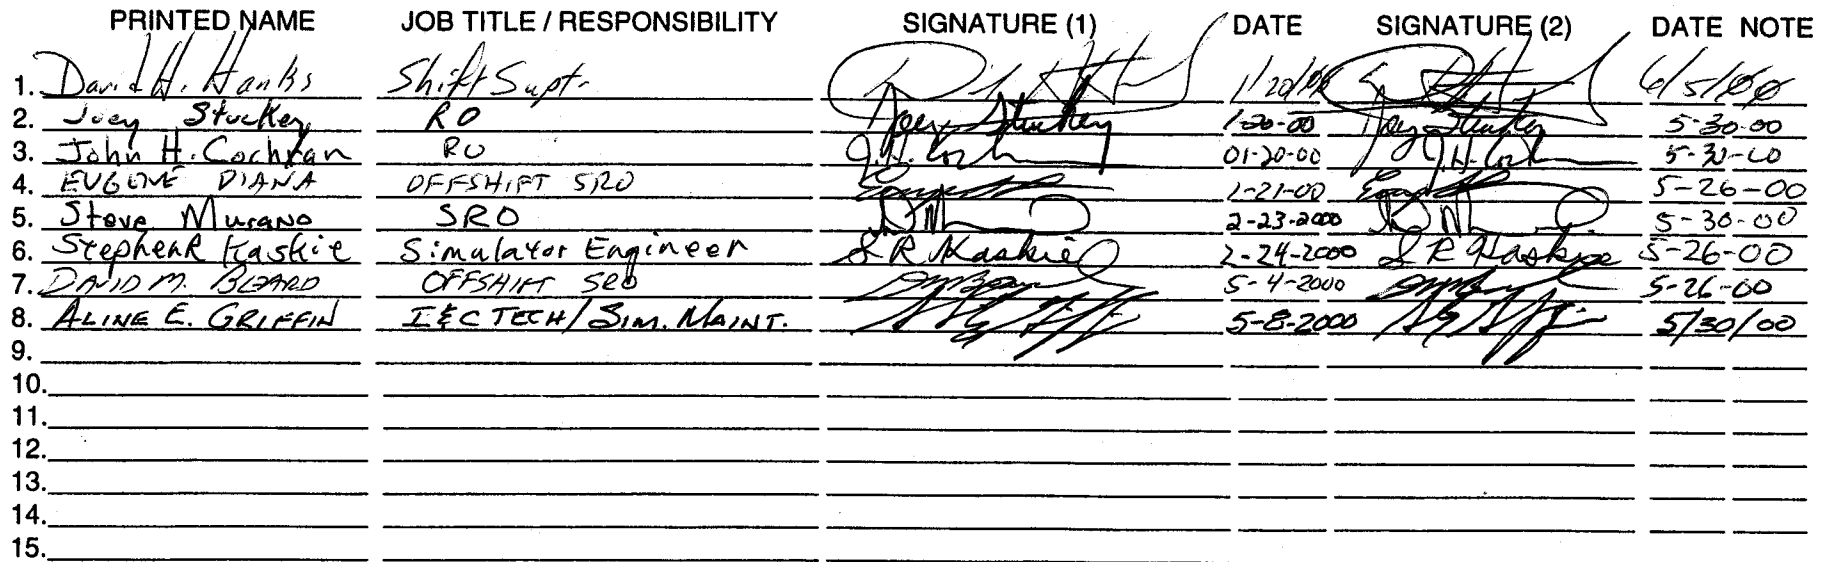 PRINTED NAME JOB TITLE / RESPONSIBILITY SIGNATURE (1) DATE SIGNATURE (2) DATE NOTE
1. David H. Hanks Shift Supt. 1/20/00 6/5/00
2. Joey Stuckey RO Joey Stuckey 1-20-00 Joey Stuckey 5-30-00
3. John H. Cochran RO J.H. 01-20-00 J.H. 5-30-00
4. EUGENE DIANA OFFSHIFT SRO 1-21-00 5-26-00
5. Steve Murano SRO 2-23-2000 5-30-00
6. Stephen R Kaskie Simulator Engineer S R Kaskie 2-24-2000 S R Kaskie 5-26-00
7. DAVID M. BEARD OFFSHIFT SRO 5-4-2000 5-26-00
8. ALINE E. GRIFFIN I&C TECH / SIM. MAINT. 5-8-2000 5/30/00
9.
10.
11.
12.
13.
14.
15.